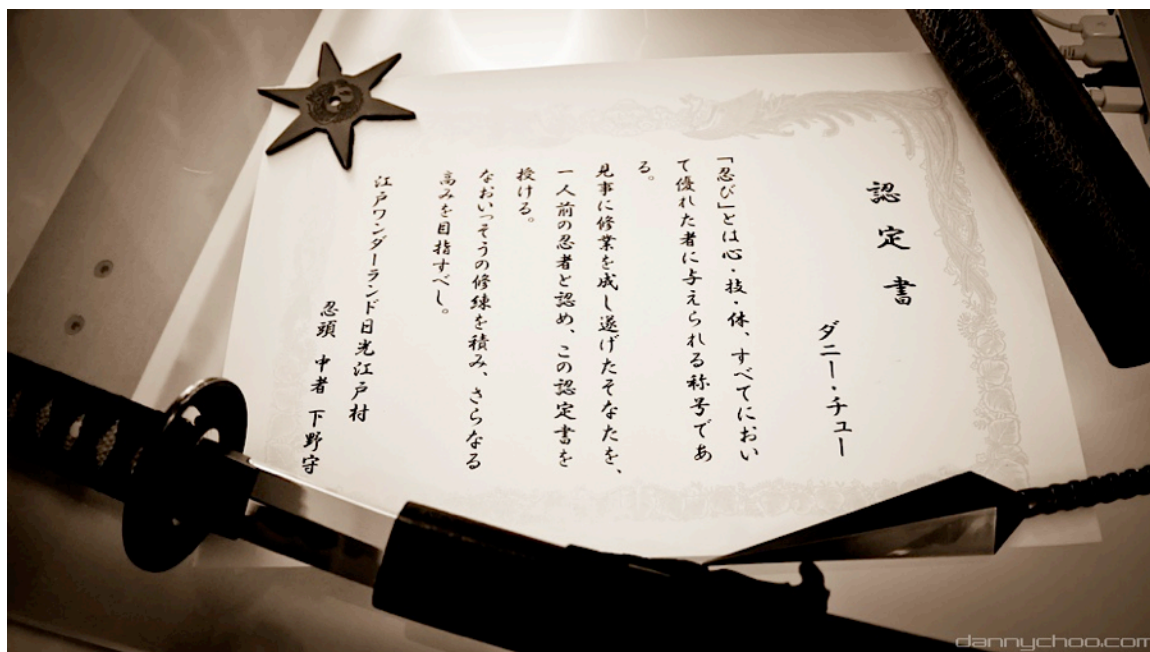 認定書
ダニー・チュー
「忍び」とは心・技・体、すべてにおい
て優れた者に与えられる称号であ
る。
見事に修業を成し遂げたそなたを、
一人前の忍者と認め、この認定書を
授ける。
なおいっそうの修練を積み、さらなる
高みを目指すべし。
江戸ワンダーランド日光江戸村
忍頭 中者 下野守
dannychoo.com